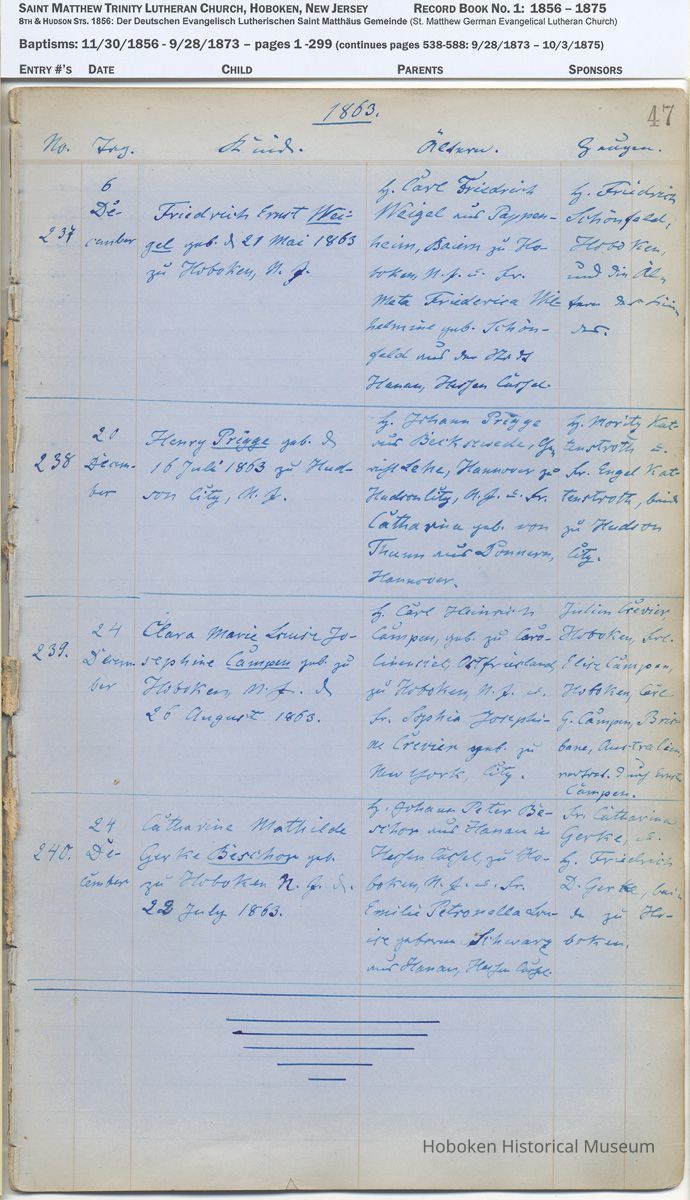 SAINT MATTHEW TRINITY LUTHERAN CHURCH, HOBOKEN, NEW JERSEY RECORD BOOK NO. 1: 1856 – 1875
8TH & HUDSON STS. 1856: Der Deutschen Evangelisch Lutherischen Saint Matthäus Gemeinde (St. Matthew German Evangelical Lutheran Church)
Baptisms: 11/30/1856 - 9/28/1873 – pages 1 -299 (continues pages 538-588: 9/28/1873 – 10/3/1875)
ENTRY #'S DATE CHILD PARENTS SPONSORS
1863. 47
No. Tag. Kind. Ältern. Zeugen.
237
6
De-
cember
Friedrich Ernst Wei-
gel geb. d 21 Mai 1863
zu Hoboken, N. J.
H. Carl Friedrich
Weigel aus Pappen-
heim, Baiern zu Ho-
boken, N. J. u. Fr.
Meta Friederica Wil-
helmine geb. Schön-
feld aus der
Hanau, Hessen Cassel.
H. Friedrich
Schönfeld,
Hoboken,
und die Äl-
tern des Kin-
des.
238
20
Decem-
ber
Henry Prigge geb. d
16 Juli 1863 zu Hud-
son City, N. J.
H. Johann Prigge
aus Beckswede,
Lehe, Hannover zu
Hudson City, N. J. u. Fr.
Catharina geb. von
Thunn aus Donnern,
Hannover.
H. Moritz Kat-
tenstroth u.
Fr. Engel Kat-
tenstroth, beide
zu Hudson
City.
239.
24
Decem-
ber
Clara Marie Louise Jo-
sephine Campen geb. zu
Hoboken, N. J. d
26 August 1863.
H. Carl Heinrich
Campen, geb. zu Caro-
linensiel, Ostfriesland,
zu Hoboken, N. J. u.
Fr. Sophia Josephi-
ne Crevier geb. zu
New York, City.
Julien Crevier,
Hoboken, Frl.
Elise Campen,
Hoboken, Carl
G. Campen, Bris-
bane, Australien,
vertret. durch Ernst
Campen.
240.
24
De-
cember
Catharine Mathilde
Gerke Beschor geb.
zu Hoboken N. J. d.
22 July 1863.
H. Johann Peter Be-
schor aus Hanau in
Hessen Cassel, zu Ho-
boken, N. J. u. Fr.
Emilie Petronella Lou-
ise geborene Schwarz
aus Hanau, Hessen Cassel
Fr. Catharina
Gerke, u.
H. Friedrich
D. Gerke, bei-
de zu Ho-
boken.
Hoboken Historical Museum